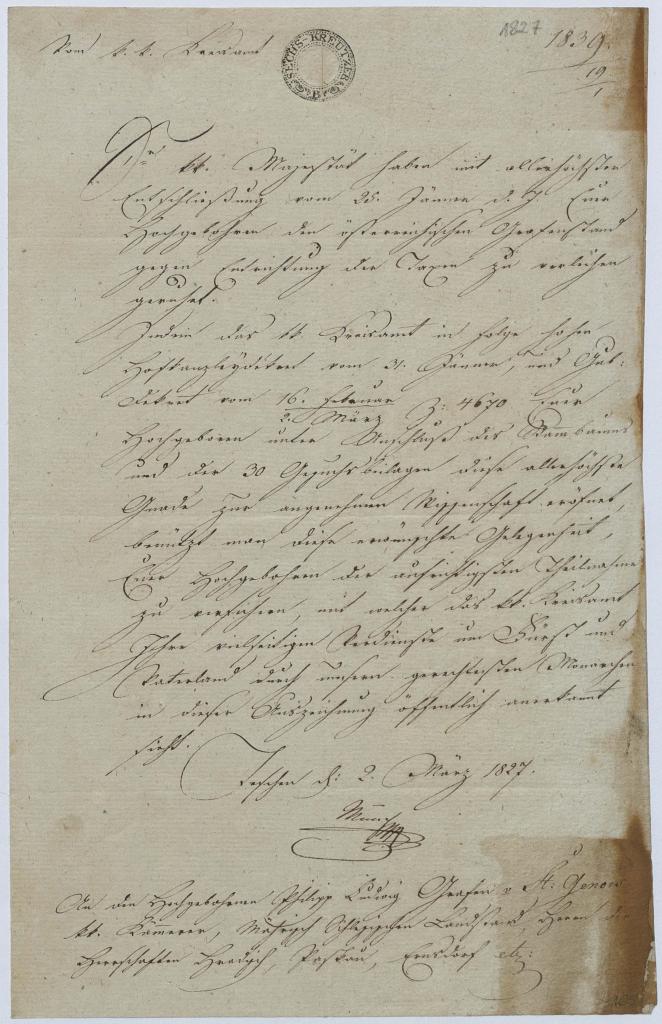 1827
1839
19/1
Vom k. k. Kreisamt
SECHS-KREUTZER B
Sr kk. Majestät haben mit allerhöchster
Entschließung vom 25. Jänner d. J. Euer
Hochgebohren den österreichischen Grafenstand
gegen Entrichtung der Taxen zu verleihen
geruhet.
Indem das kk. Kreisamt in Folge hohen
Hofkanzleydekret vom 31. Jänner, und Gub:
Dekret vom 16. Februar / 2. März Z: 4670 Euer
Hochgeboren unter Anschluß des Stammbaums
und der 30 Gesuchsbeilagen diese allerhöchste
Gnade zur angenehmen Wissenschaft eröfnet,
benützt man diese erwünschte Gelegenheit,
Euer Hochgebohren der aufrichtigsten Theilnahme
zu versichern, mit welcher das kk. Kreisamt
Ihre vielseitigen Verdienste um Fürst und
Vaterland durch unsern gerechtesten Monarchen
in dieser Auszeichnung öffentlich anerkannt
sieht.
Teschen d: 2. März 1827.
An den Hochgebohrnen Philipp Ludwig Grafen v St: Genois
kk. Kämmerer, Mährisch Schlesischen Landstand, Herrn der
Herrschaften Hradisch, Paskau, Ernsdorf etz: